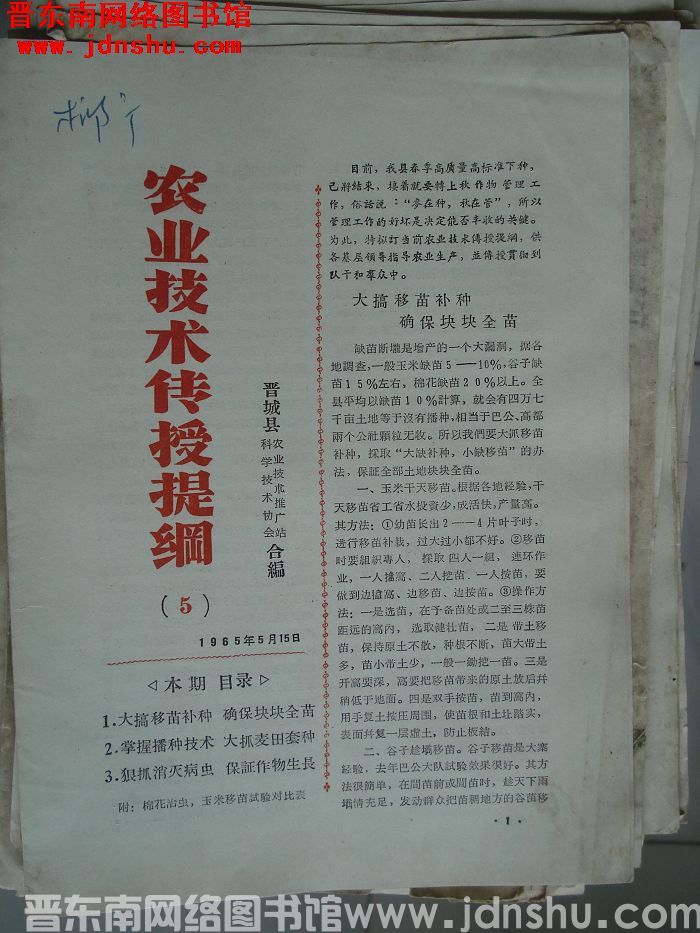 晋东南网络图书馆
www.jdnshu.com
农业技术传授提綱
(5)
晋城县 农业技术推广站 科学技术协会 合編
1965年5月15日
◁本期 目录▷
1.大搞移苗补种 确保块块全苗
2.掌握播种技术 大抓麦田套种
3.狠抓消灭病虫 保証作物生長
附：棉花治虫，玉米移苗試驗对比表
目前，我县春季高质量高标准下种，
已將結束，接着就要轉上秋作物管理工
作，俗話說：“麥在种，秋在管”，所以
管理工作的好坏是决定能否丰收的关键。
为此，特拟訂当前农业技术傳授提綱，供
各基层領导指导农业生产，並傳授貫彻到
队干和羣众中。
大搞移苗补种
确保块块全苗
缺苗断壠是增产的一个大漏洞，据各
地調查，一般玉米缺苗5——10%，谷子缺
苗15%左右，棉花缺苗20%以上。全
县平均以缺苗10%計算，就会有四万七
千亩土地等于沒有播种，相当于巴公、高都
兩个公社顆粒无收。所以我們要大抓移苗
补种，採取“大缺补种，小缺移苗”的办
法，保証全部土地块块全苗。
一、玉米干天移苗。根据各地经驗，干
天移苗省工省水投資少，成活快，产量高。
其方法：①幼苗长出2——4片叶子时，
进行移苗补栽，过大过小都不好。②移苗
时要組織專人，採取四人一組，連环作
业，一人摟窩、二人挖苗、一人按苗，要
做到边摟窩、边移苗、边按苗。③操作方
法：一是选苗，在予备苗处或二至三株苗
距远的窩內，选取健壮苗，二是带土移
苗，保持原土不散，种根不断，苗大带土
多，苗小带土少，一般一鋤挖一苗。三是
开窩要深，窩要把移苗带来的原土放后幷
稍低于地面。四是双手按苗，苗到窩內，
用手复土按压周圍，使苗根和土壮踏实，
表面幷复一层虛土，防止板結。
二、谷子趁墒移苗。谷子移苗是大寨
经驗，去年巴公大队試验效果很好。其方
法很簡单，在間苗前或間苗时，趁天下雨
墒情充足，发动群众把苗稠地方的谷苗移
·1·
晋东南网络图书馆www.jdnshu.com